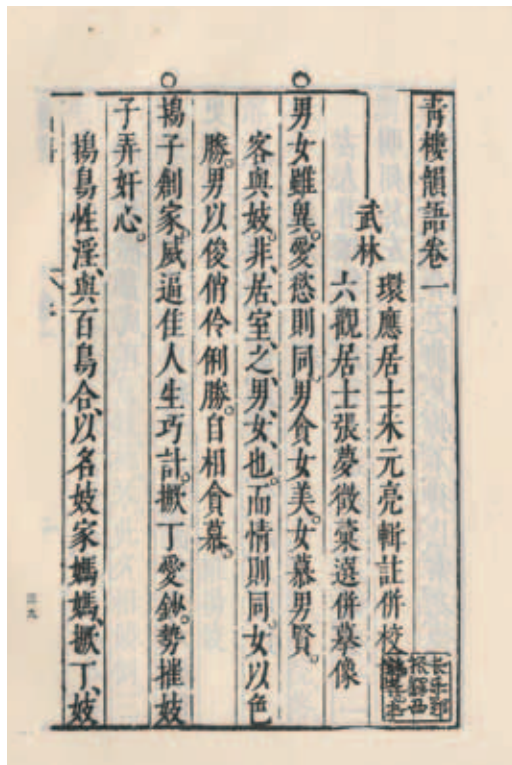 青樓韻語卷一
武林
環應居士朱元亮輯註併校
六觀居士張夢微彙選併摹像
男女雖異。愛慾則同。男貪女美。女慕男賢。
客與妓。非、居、室、之、男、女、也。而情則同。女以色
勝。男以俊俏伶俐勝。自相貪慕。
鴇子創家。威逼佳人生巧計。撅丁愛鈔。勢摧妓
子弄奸心。
鴇鳥性淫、與百鳥合、以名妓家媽媽、撅丁、妓
長樂鄭
振鐸西
諦藏書